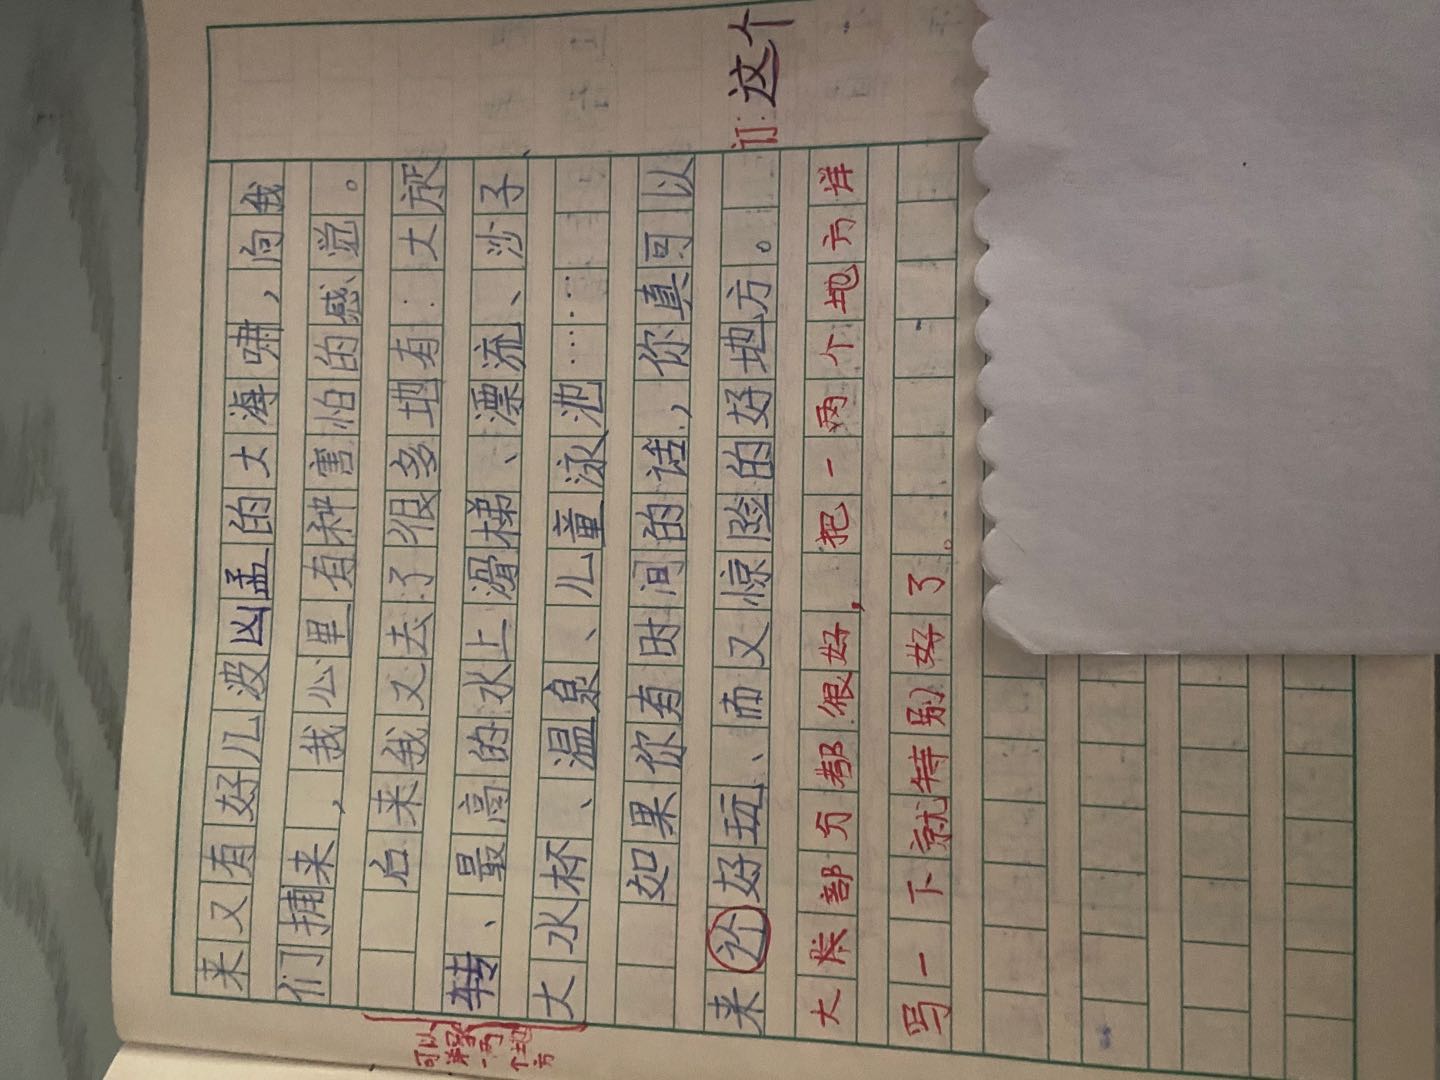 来又有好几波凶孟的大海啸，向我
们捕来，我心里有种害怕的感觉。
后来我又去了很多地有：大旋
转、最高的水上滑梯、漂流、沙子
大水杯、温泉、儿童泳池……
如果你有时间的话，你真可以
来这好玩、而又惊险的好地方。
订：这个
大部分都很好，把一两个地方详
写一下就特别好了。
可以
详写
一两
个地
方